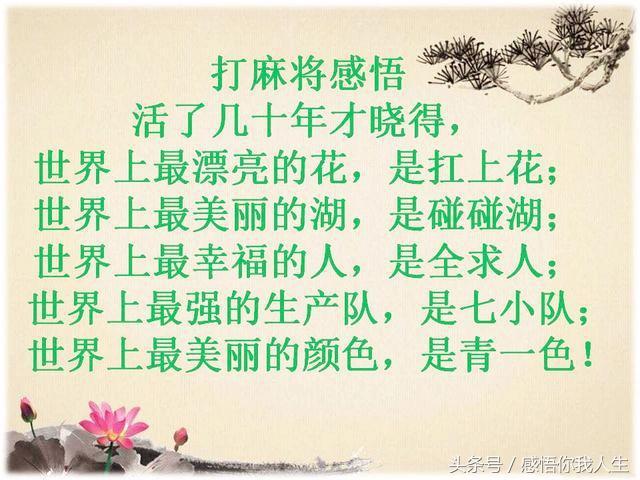 打麻将感悟
活了几十年才晓得，
世界上最漂亮的花，是扛上花；
世界上最美丽的湖，是碰碰湖；
世界上最幸福的人，是全求人；
世界上最强的生产队，是七小队；
世界上最美丽的颜色，是青一色！
头条号 / 感悟你我人生